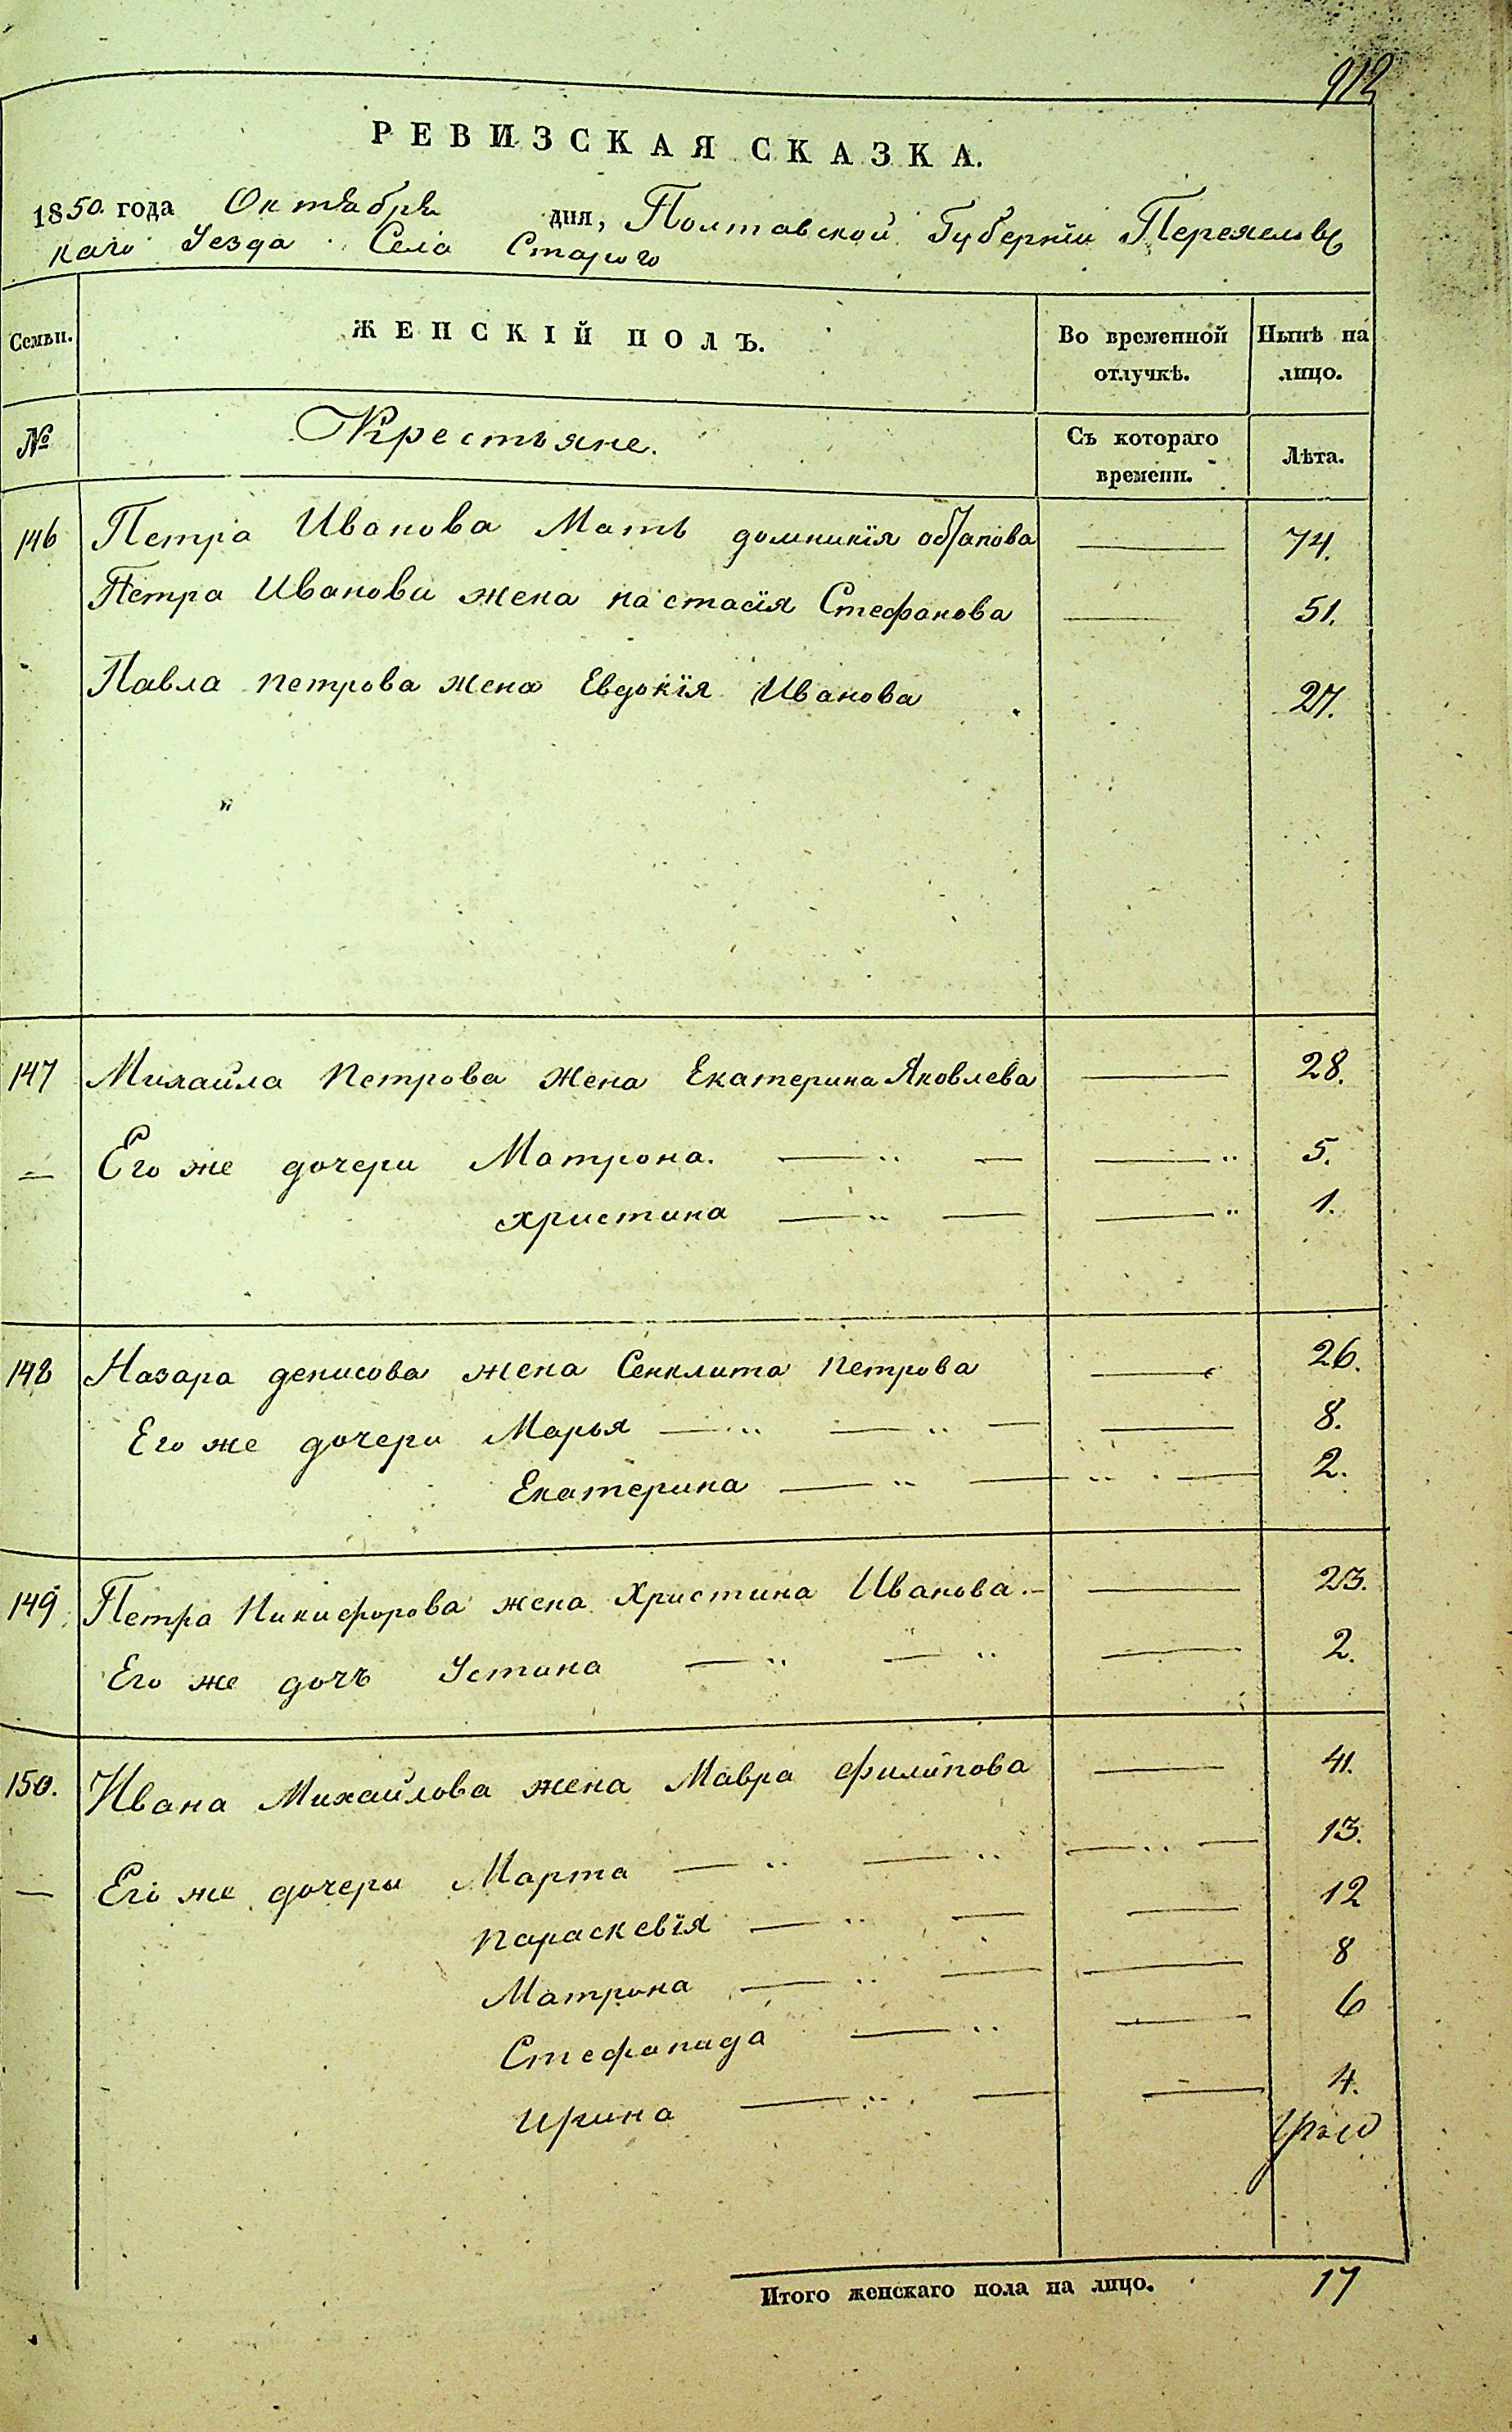 912
РЕВИЗСКАЯ СКАЗКА.
1850. года Октября дня, Полтавской Губернїи Переяславс
каго Уезда. Села Старого
Семьи. ЖЕНСКІЙ ПОЛЪ. Во временной отлучкѣ. Нынѣ на лицо.
№ Крестьяне. Съ котораго времени. Лѣта.
146 Петра Иванова Мать домникїя 74.
Петра Иванова жена настасїя Стефанова 51.
Павла петрова жена Евдокїя Иванова 27.
147 Михайла Петрова Жена Екатерина Яковлева 28.
Его же дочери Матрона. 5.
христина 1.
148 Назара денисова жена Сенклита петрова 26.
Его же дочери Марья 8.
Екатерина 2.
149 Петра Никифорова жена Христина Иванова. 23.
Его же дочъ Устина 2.
150. Ивана Михайлова жена Мавра филипова 41.
Его же дочери Марта 13.
параскевїя 12
Матрона 8
Стефанида 6
ирина 4.
Итого женскаго пола на лицо. 17